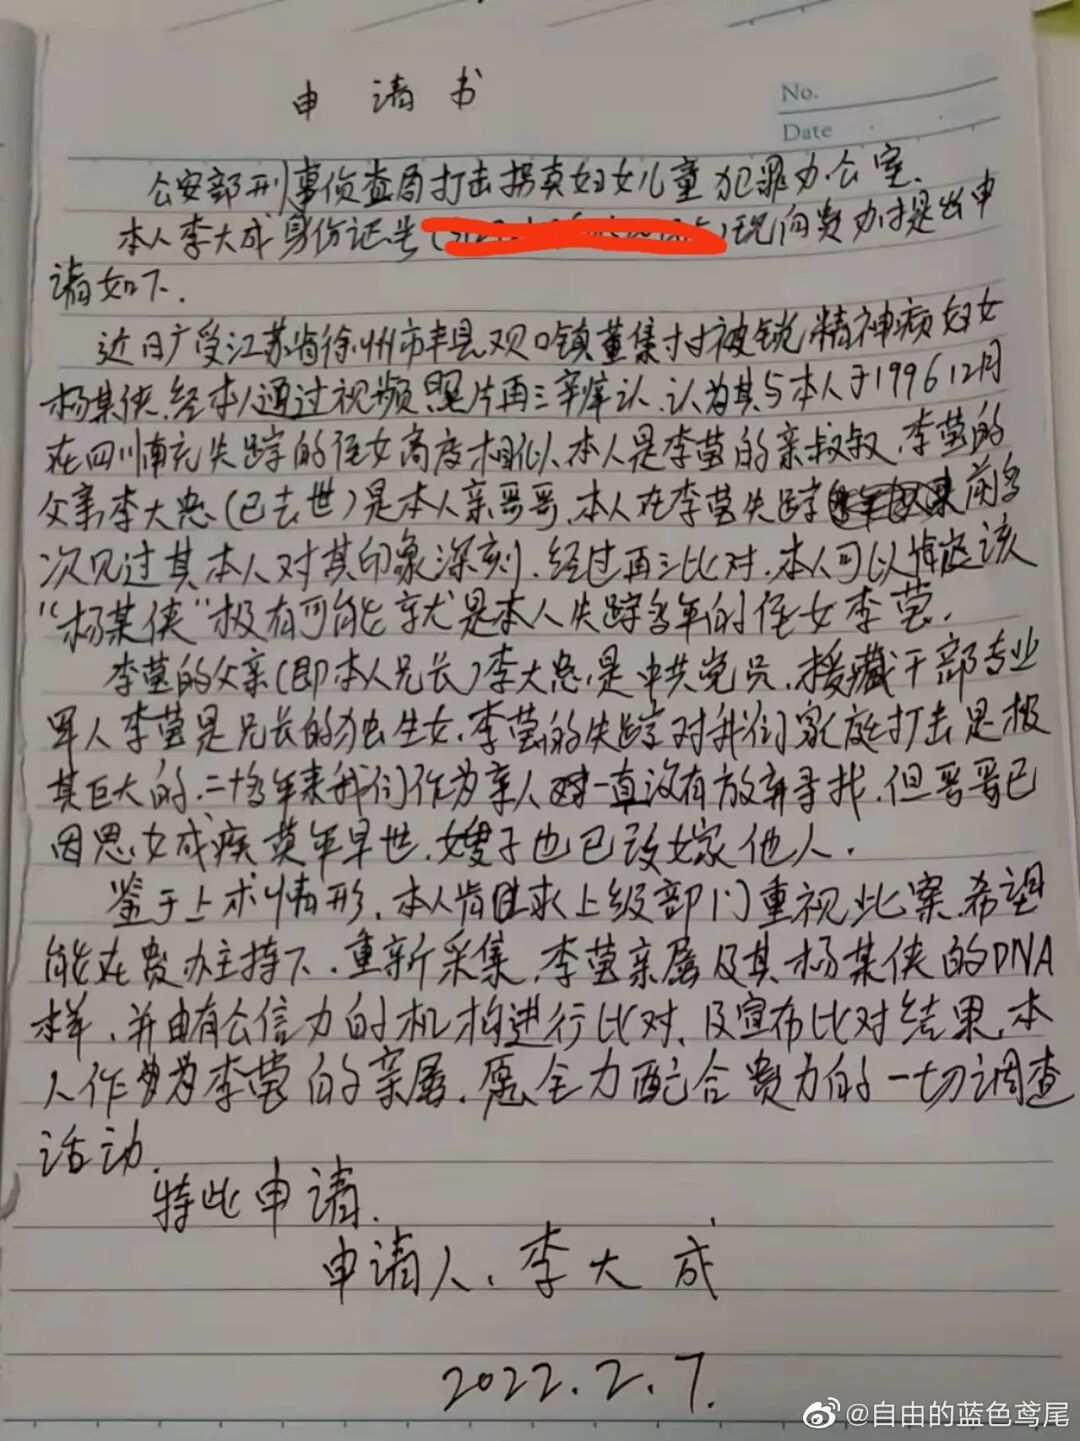 申请书
No.
Date
公安部刑事侦查局打击拐卖妇女儿童犯罪办公室.
本人李大成身份证号()现向贵办提出申
请如下.
近日广受江苏省徐州市丰县欢口镇董集村被锁精神病妇女
杨某侠.经本人通过视频照片再三辨认.认为其与本人于199612月
在四川南充失踪的侄女高度相似.本人是李莹的亲叔叔.李莹的
父亲李大忠(已去世)是本人亲哥哥.本人在李莹失踪前多
次见过其本人对其印象深刻.经过再三比对.本人可以该
"杨某侠"极有可能就是本人失踪多年的侄女李莹.
李莹的父亲(即本人兄长)李大忠.是中共党员.援藏干部专业
军人李莹是兄长的独生女.李莹的失踪对我们家庭打击是极
其巨大的.二十多年来我们作为亲人一直没有放弃寻找.但哥哥已
因思女成疾英年早世.嫂子也已改嫁他人.
鉴于上术情形.本人肯求上级部门重视此案.希望
能在贵办主持下.重新采集.李莹亲属及其杨某侠的DNA
样.并由有公信力的机构进行比对.及宣布比对结果.本
人作为李莹的亲属.愿全力配合贵方的一切调查
活动.
特此申请.
申请人.李大成
2022.2.7.
@自由的蓝色鸢尾